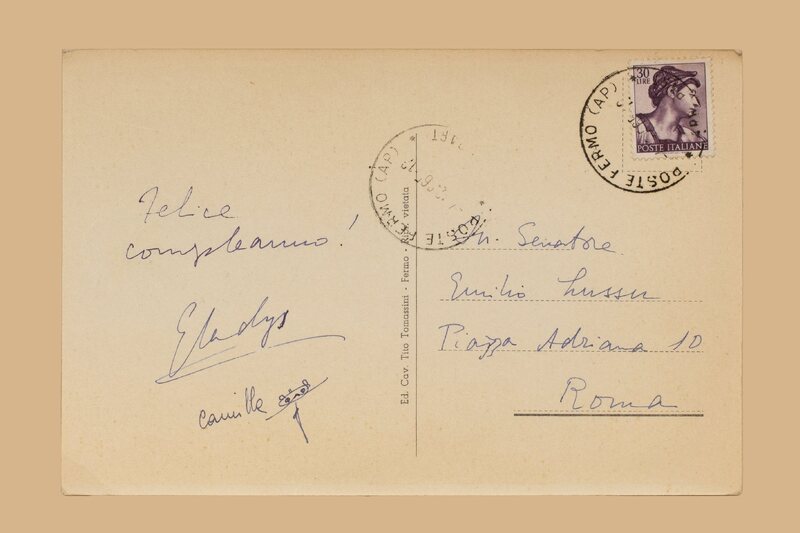 Felice
compleanno!
Gladys
Camilla
Ed. Cav. Tito Tomassini - Fermo - Rip. vietata
POSTE FERMO (AP)
30
LIRE
POSTE ITALIANE
POSTE FERMO (AP)
On. Senatore
Emilio Lussu
Piazza Adriana 10
Roma